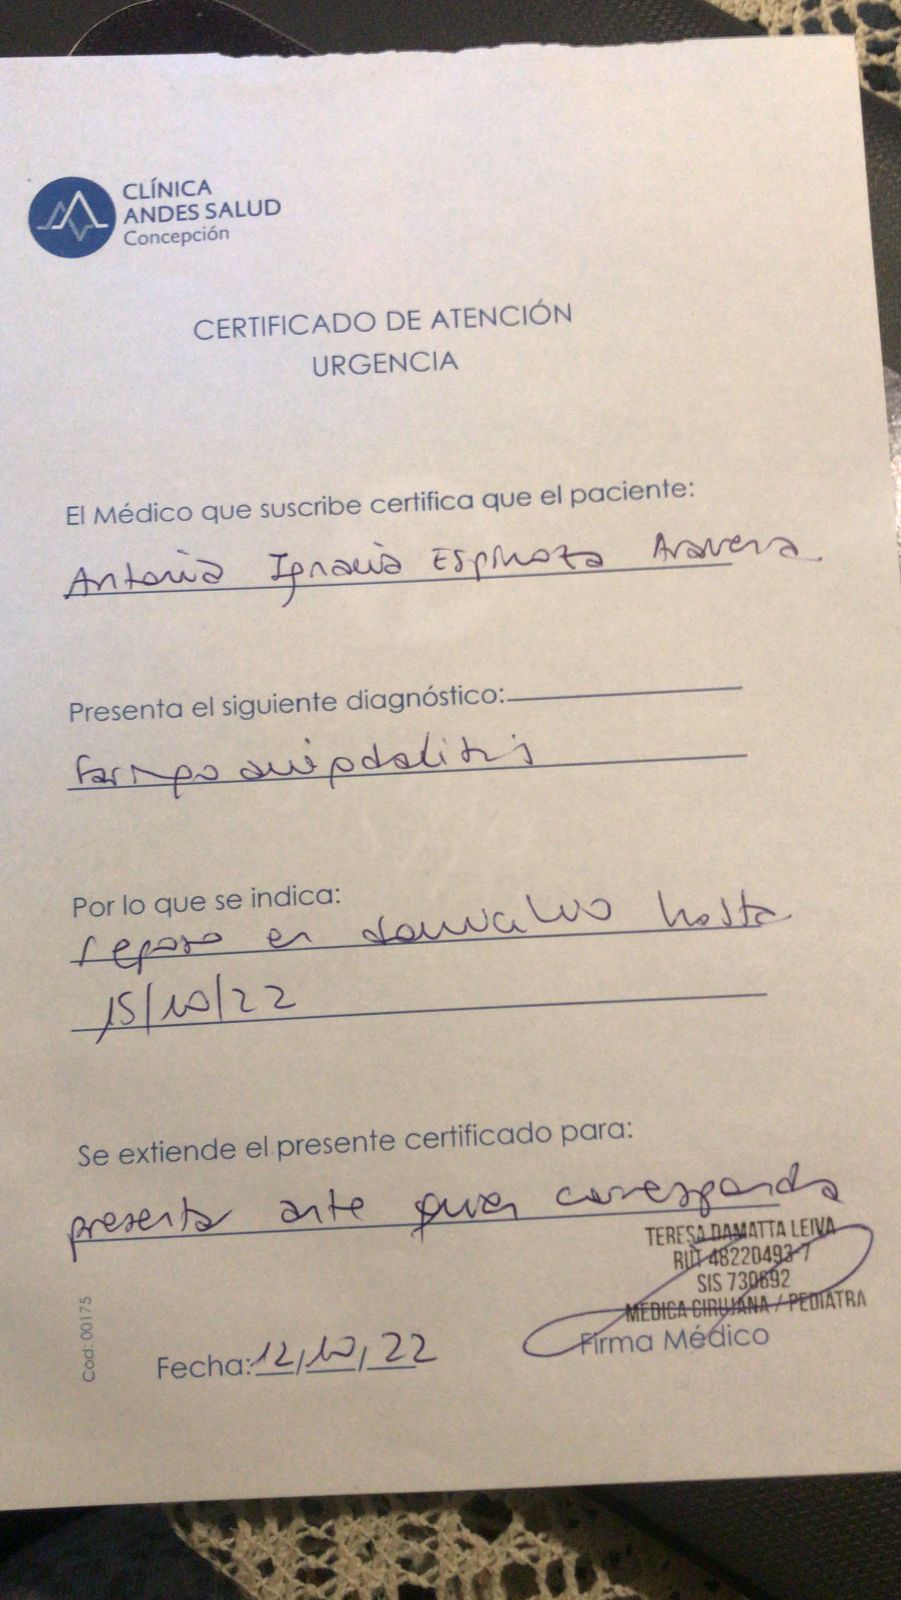 CLÍNICA
ANDES SALUD
Concepción
CERTIFICADO DE ATENCIÓN
URGENCIA
El Médico que suscribe certifica que el paciente:
Antonia Ignacia Espinoza Aravena
Presenta el siguiente diagnóstico:
faringoamigdalitis
Por lo que se indica:
reposo en domicilio hasta
15/10/22
Se extiende el presente certificado para:
presentar ante quien corresponda
TERESA DAMATTA LEIVA
RUT 48220493-7
SIS 730692
MEDICA CIRUJANA / PEDIATRA
Firma Médico
Fecha: 12, 10, 22
Cod: 00175